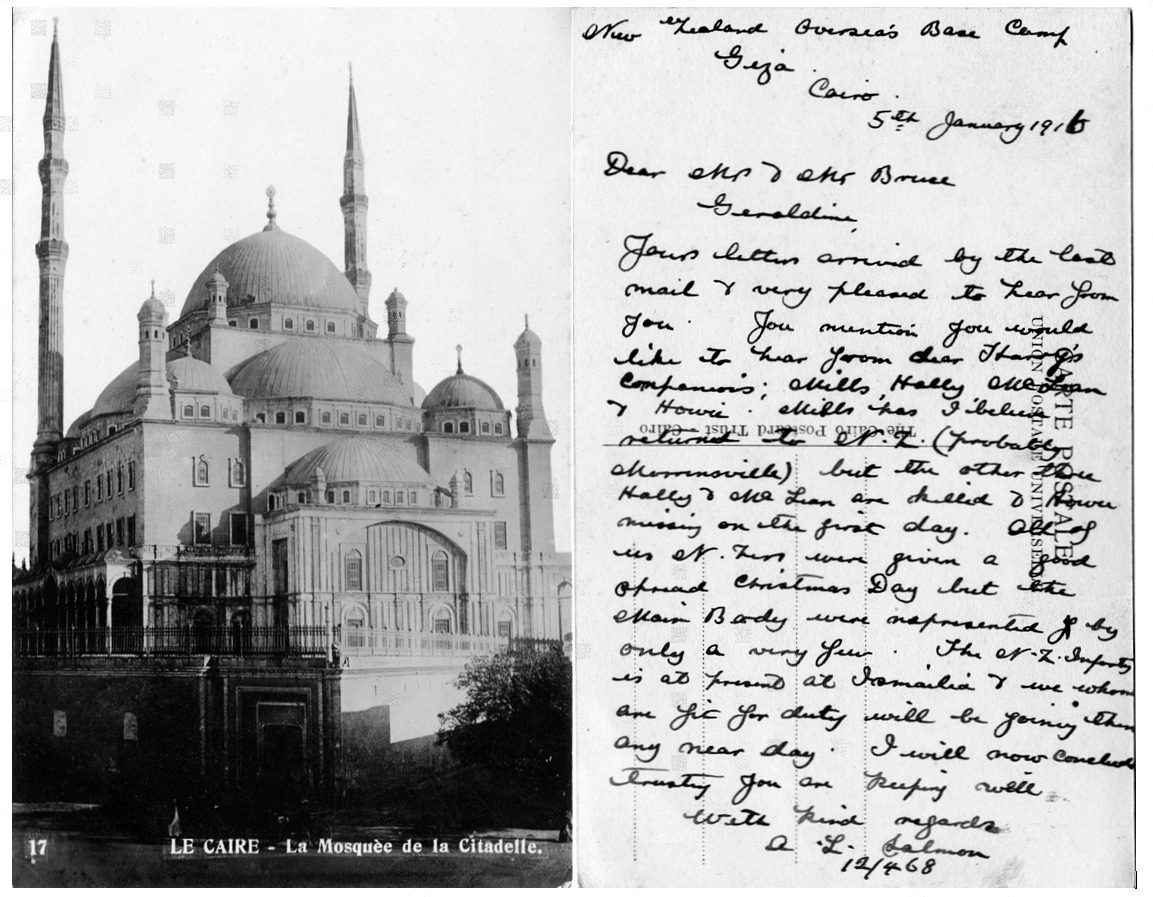 17
LE CAIRE - La Mosquèe de la Citadelle.
New Zealand Oversea's Base Camp
Geza
Cairo.
5th January 1916
Dear Mrs & Mr Bruce
Geraldine,
Yours letters arrived by the last
mail & very pleased to hear from
you. You mention you would
like to hear from dear Harry's
Companion's; Mills, Hally McLean
& Howie. Mills has I believe
returned to N.Z. (probably
Morrinsville) but the other three
Hally & Mc Lean are killed & Howie
missing on the first day. All of
us N. Zers were given a good
spread Christmas Day but the
Main Body were represented by
only a very few. The N-Z. Infantry
is at present at Ismailia & we whom
are fit for duty will be joining them
any near day. I will now conclude
trusting you are keeping well
With kind regards
A. L. Salmon
12/468
The Cairo Postcard Trust - Cairo
CARTE POSTALE
UNION POSTALE UNIVERSELLE